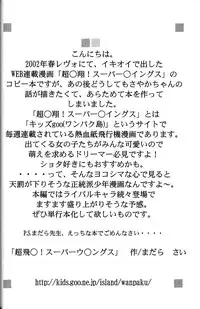 こんにちは。
2002年春レヴォにて、イキオイで出した
WEB連載漫画「超〇翔！スーパー〇イングス」の
コピー本ですが、あの後どうしてもさやかちゃんの
話が描きたくて、あらためて本を作って
しまいました。
「超〇翔！スーパー〇イングス」とは
「キッズgoo!ワンパク島」というサイトで
毎週連載されている熱血紙飛行機漫画であります。
出てくる女の子たちがみんな可愛いので
萌えを求めるドリーマー必見ですよ！
ショタ好きにもおすすめかも。
・・・・って、そんなヨコシマな心で見ると
天罰が下りそうな正統派少年漫画なんですよ～。
本編ではライバルキャラ続々登場で
ますます盛り上がりそうな予感。
ぜひ単行本化して欲しいものです。
P.S.まだら先生、えっちな本でごめんなさい・・・・
「超飛〇！スーパーウ〇ングス」　作/まだら　さい
http://kids.goo.ne.jp/island/wanpaku/